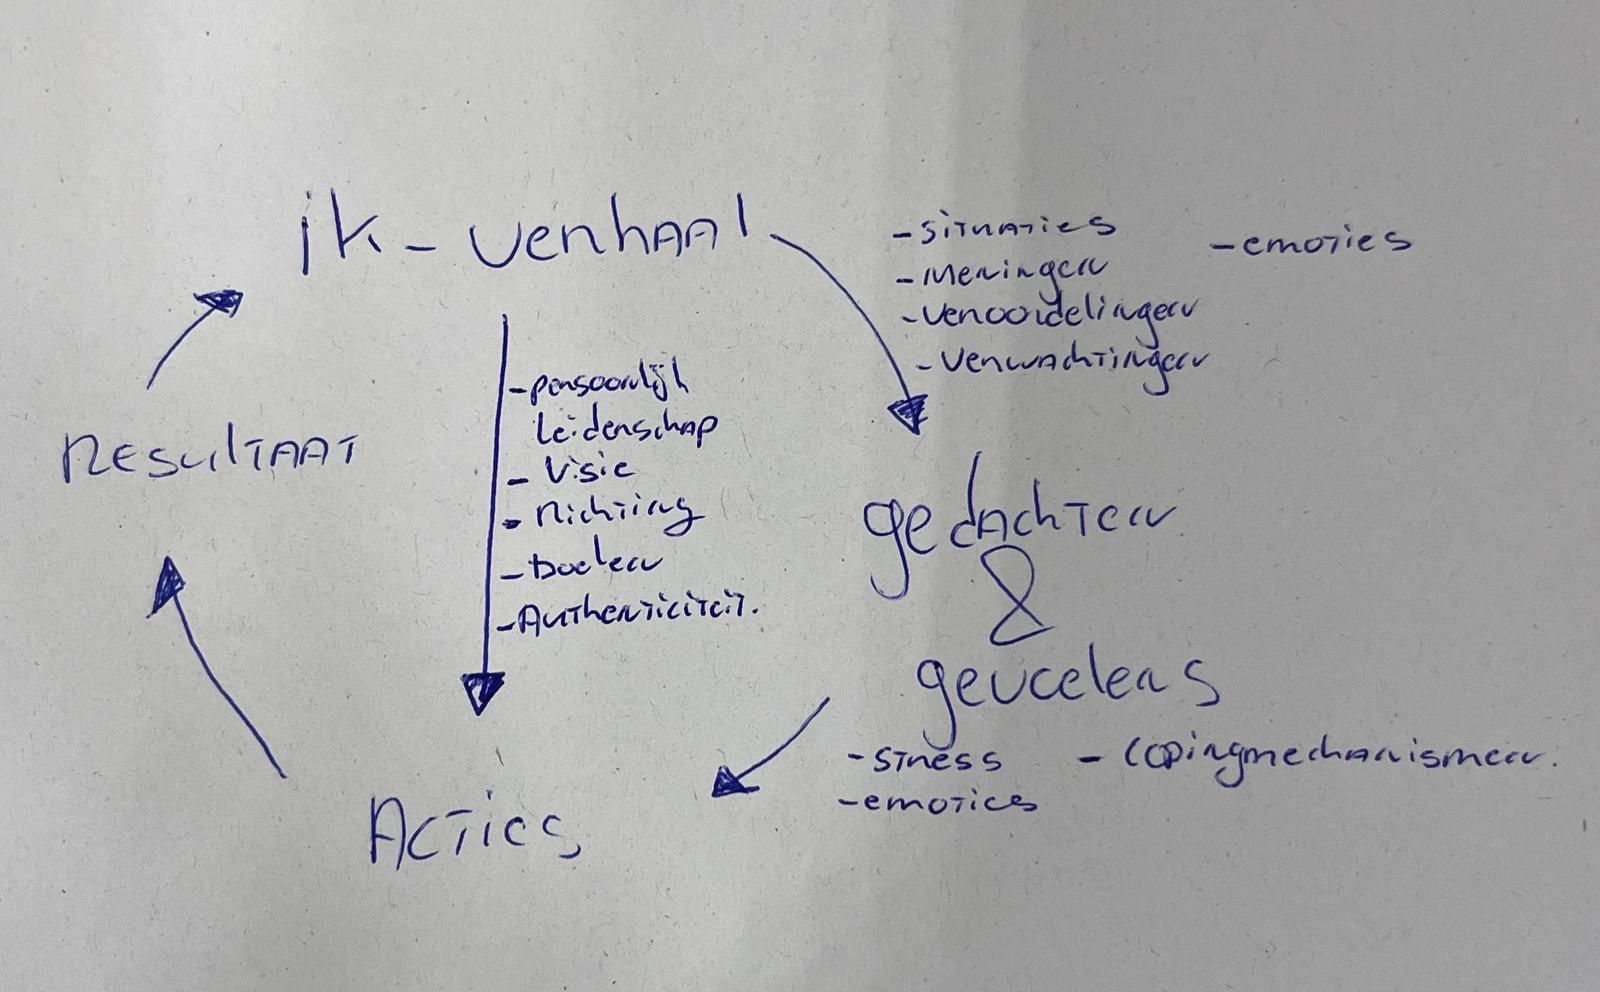 ik-verhaal
- situaties
- emoties
- Meningen
- veroordelingen
- verwachtingen
- persoonlijk
leidenschap
- Visie
- Richting
- Doelen
- Authenticiteit.
Resultaat
gedachten
&
gevoelens
- stress
- copingmechanismen.
- emoties
Acties